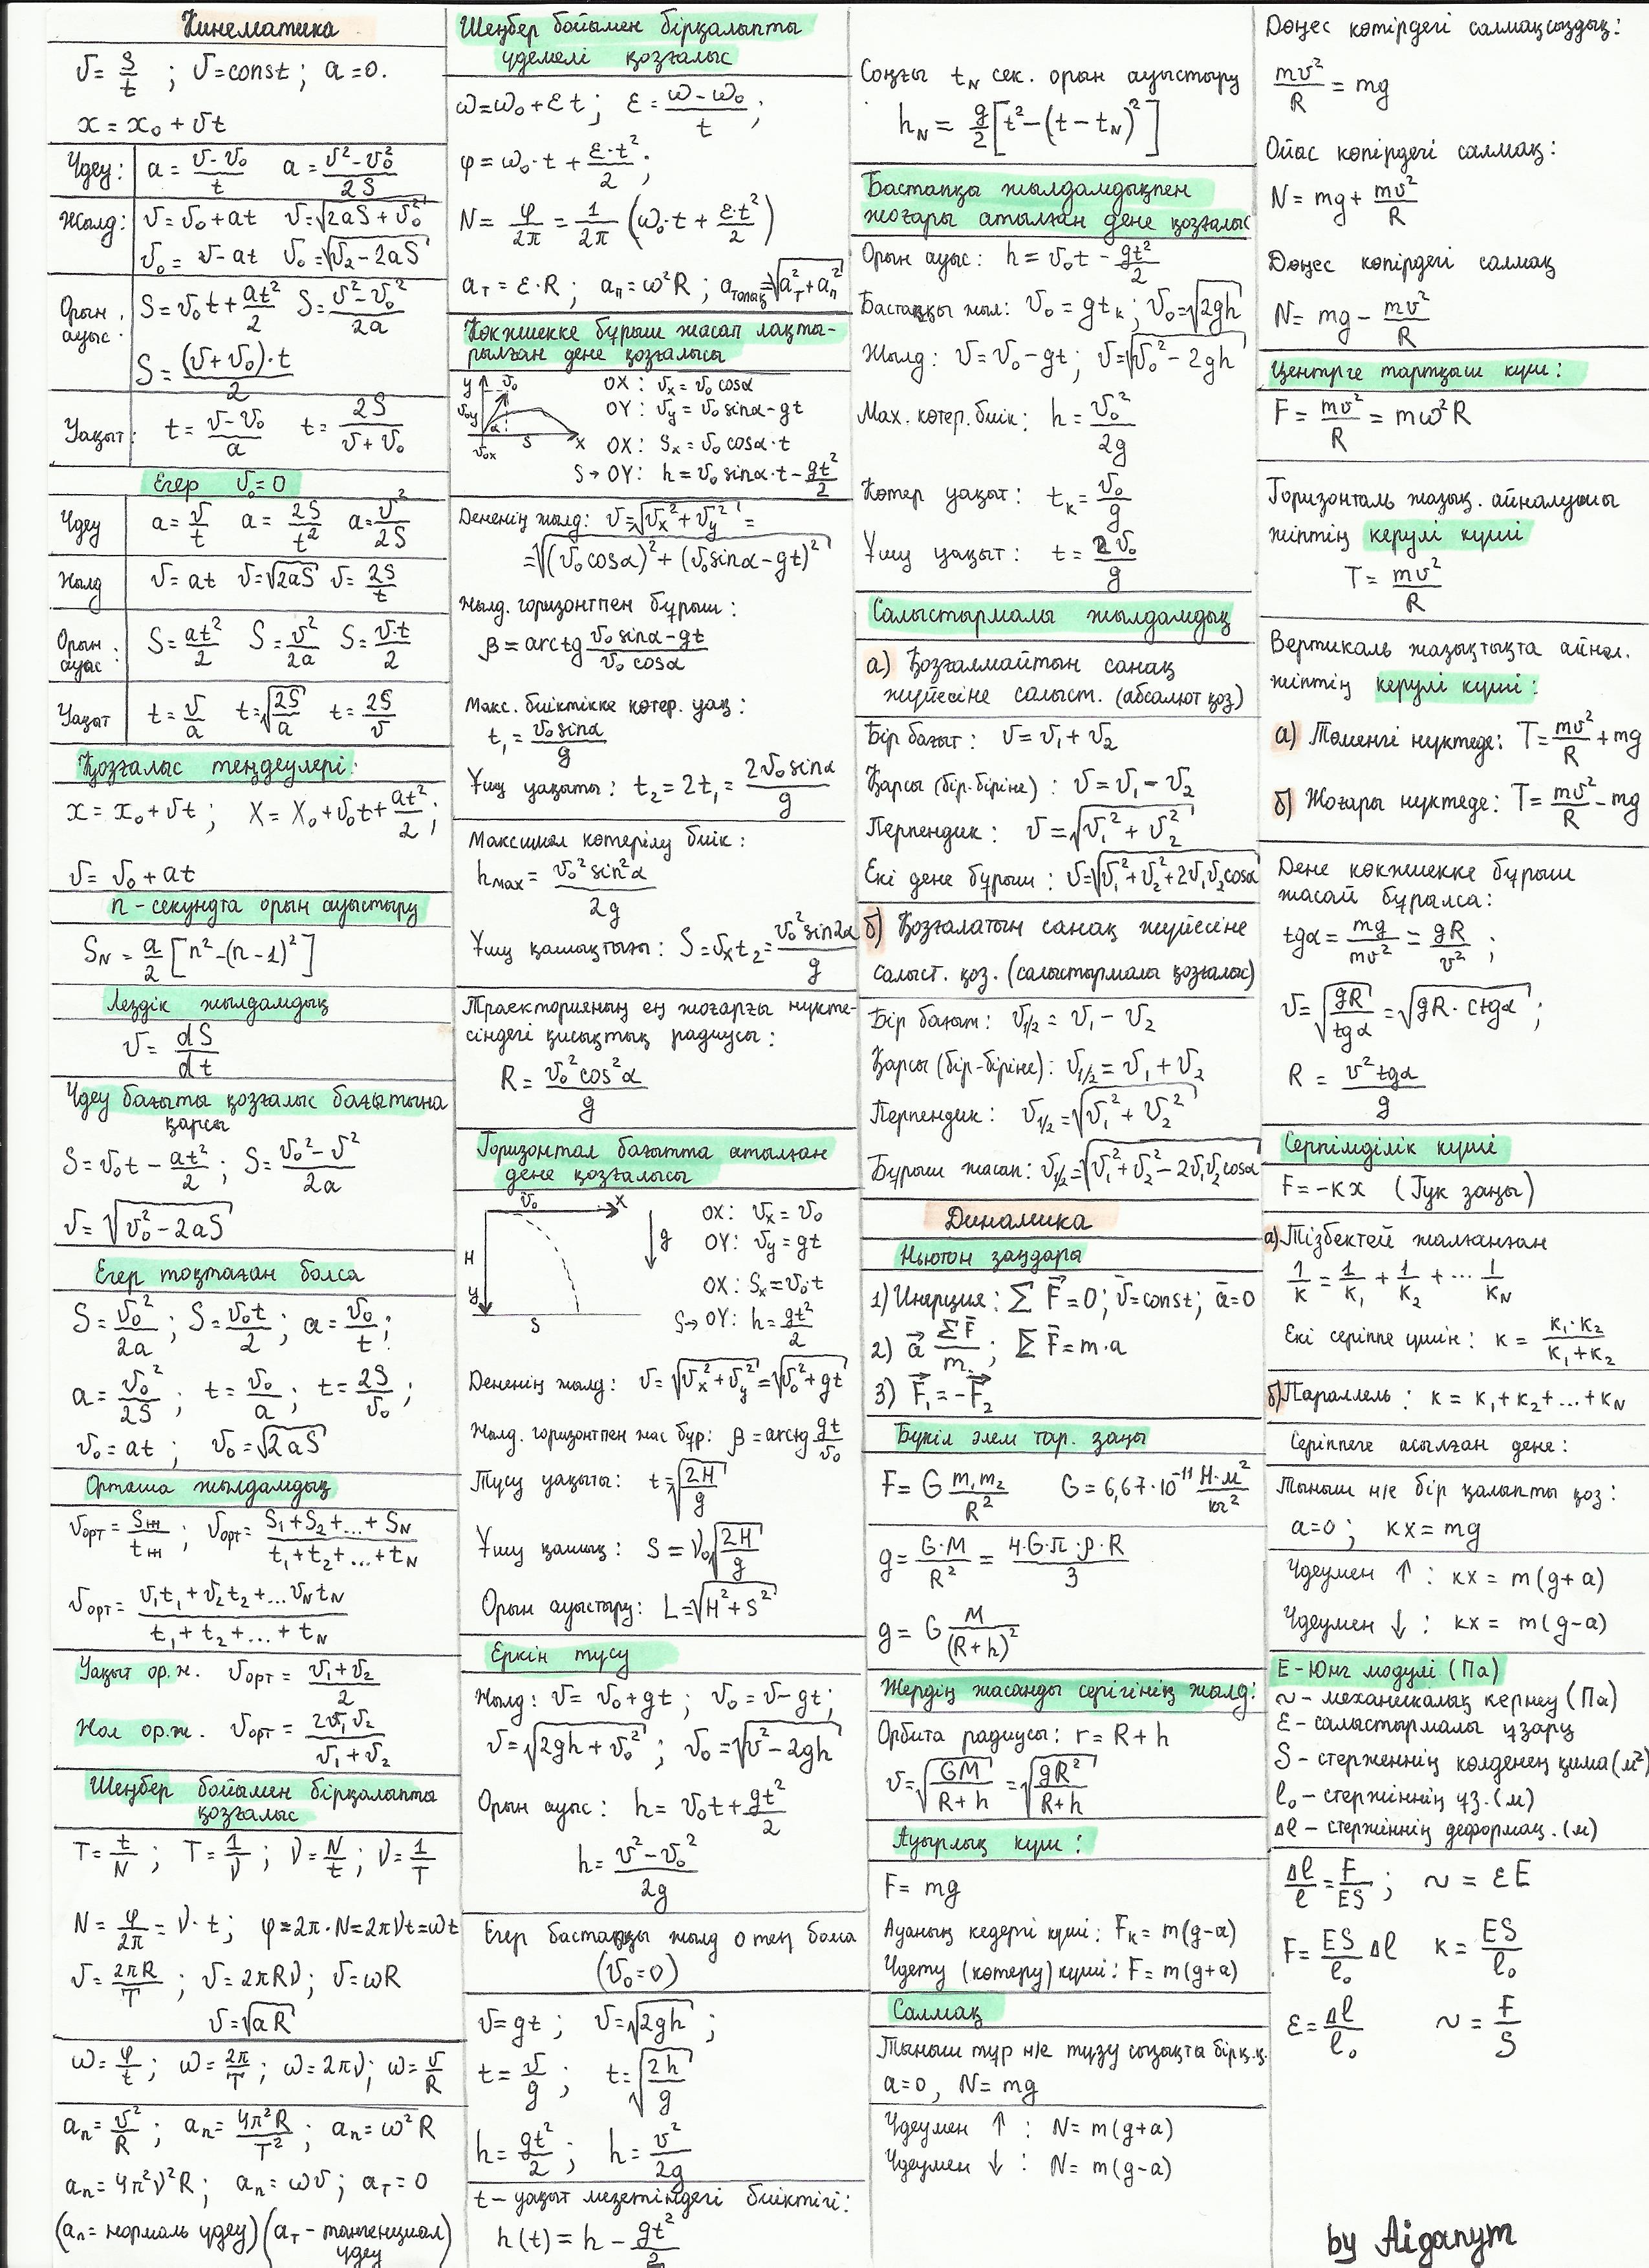 Кинематика
υ = S/t ; υ = const ; a = 0.
x = x₀ + υt
Үдеу: a = (υ - υ₀)/t a = (υ² - υ₀²)/2S
Жылд: υ = υ₀ + at υ = √(2aS + υ₀²)
υ₀ = υ - at υ₀ = √(υ₂ - 2aS)
Орын ауыс: S = υ₀t + at²/2 S = (υ² - υ₀²)/2a
S = (υ + υ₀)·t/2
Уақыт: t = (υ - υ₀)/a t = 2S/(υ + υ₀)
Егер υ₀ = 0
Үдеу a = υ/t a = 2S/t² a = υ²/2S
Жылд υ = at υ = √(2aS) υ = 2S/t
Орын ауыс: S = at²/2 S = υ²/2a S = υ·t/2
Уақыт t = υ/a t = √(2S/a) t = 2S/υ
Қозғалыс теңдеулері:
x = x₀ + υt ; X = X₀ + υ₀t + at²/2 ;
υ = υ₀ + at
n - секундта орын ауыстыру
S_N = a/2 [n² - (n - 1)²]
Лездік жылдамдық
υ = dS/dt
Үдеу бағыты қозғалыс бағытына
қарсы
S = υ₀t - at²/2 ; S = (υ₀² - υ²)/2a
υ = √(υ₀² - 2aS)
Егер тоқтаған болса
S = υ₀²/2a ; S = υ₀t/2 ; a = υ₀/t ;
a = υ₀²/2S ; t = υ₀/a ; t = 2S/υ₀ ;
υ₀ = at ; υ₀ = √(2aS)
Орташа жылдамдық
υорт = Sжж/tжж ; υорт = (S₁ + S₂ + ... + S_N)/(t₁ + t₂ + ... + t_N)
υорт = (υ₁t₁ + υ₂t₂ + ... υ_N t_N)/(t₁ + t₂ + ... + t_N)
Уақыт ор.ж. υорт = (υ₁ + υ₂)/2
Жол ор.ж. υорт = 2υ₁υ₂/(υ₁ + υ₂)
Шеңбер бойымен бірқалыпты
қозғалыс
T = t/N ; T = 1/ν ; ν = N/t ; ν = 1/T
N = φ/2π = ν·t ; φ = 2π·N = 2πνt = ωt
υ = 2πR/T ; υ = 2πRν ; υ = ωR
υ = √(aR)
ω = φ/t ; ω = 2π/T ; ω = 2πν ; ω = υ/R
aₙ = υ²/R ; aₙ = 4π²R/T² ; aₙ = ω²R
aₙ = 4π²ν²R ; aₙ = ωυ ; a_т = 0
(aₙ = нормаль үдеу) (a_т - тангенциал
үдеу
Шеңбер бойымен бірқалыпты
үдемелі қозғалыс
ω = ω₀ + εt ; ε = (ω - ω₀)/t ;
φ = ω₀·t + ε·t²/2 ;
N = φ/2π = 1/2π (ω₀·t + ε·t²/2)
a_т = ε·R ; aₙ = ω²R ; aтолық = √(a_т² + aₙ²)
Көкжиекке бұрыш жасап лақты-
рылған дене қозғалысы
y υ₀ υ₀y α υ₀x S x
OX: υₓ = υ₀ cosα
OY: υ_y = υ₀ sinα - gt
OX: Sₓ = υ₀ cosα·t
S → OY: h = υ₀ sinα·t - gt²/2
Дененің жылд: υ = √(υₓ² + υ_y²) =
= √((υ₀ cosα)² + (υ₀ sinα - gt)²)
Жылд. горизонтпен бұрыш:
β = arctg (υ₀ sinα - gt)/(υ₀ cosα)
Макс. биіктікке көтер. уақ:
t₁ = υ₀ sinα/g
Ұшу уақыты: t₂ = 2t₁ = 2υ₀ sinα/g
Максимал көтерілу биік:
hмах = υ₀² sin²α/2g
Ұшу қашықтығы: S = υₓt₂ = υ₀² sin2α/g
Траекторияның ең жоғарғы нүкте-
сіндегі қисықтық радиусы:
R = υ₀² cos²α/g
Горизонтал бағытта атылған
дене қозғалысы
υ₀ x g H y S
OX: υₓ = υ₀
OY: υ_y = gt
OX: Sₓ = υ₀·t
S → OY: h = gt²/2
Дененің жылд: υ = √(υₓ² + υ_y²) = √(υ₀² + gt)
Жылд. горизонтпен жас бұр: β = arctg gt/υ₀
Түсу уақыты: t = √(2H/g)
Ұшу қашық: S = ν₀√(2H/g)
Орын ауыстыру: L = √(H² + S²)
Еркін түсу
Жылд: υ = υ₀ + gt ; υ₀ = υ - gt ;
υ = √(2gh + υ₀²) ; υ₀ = √(υ² - 2gh)
Орын ауыс: h = υ₀t + gt²/2
h = (υ² - υ₀²)/2g
Егер бастапқы жылд 0 тең болса
(υ₀ = 0)
υ = gt ; υ = √(2gh) ;
t = υ/g ; t = √(2h/g)
h = gt²/2 ; h = υ²/2g
t - уақыт мезетіндегі биіктігі:
h(t) = h - gt²/2
Соңғы t_N сек. орын ауыстыру
h_N = g/2 [t² - (t - t_N)²]
Бастапқы жылдамдықпен
жоғары атылған дене қозғалыс
Орын ауыс: h = υ₀t - gt²/2
Бастапқы жыл: υ₀ = gt_к ; υ₀ = √(2gh)
Жылд: υ = υ₀ - gt ; υ = √(υ₀² - 2gh)
Мах. көтер. биік: h = υ₀²/2g
Көтер уақыт: t_к = υ₀/g
Ұшу уақыт: t = 2υ₀/g
Салыстырмалы жылдамдық
а) Қозғалмайтын санақ
жүйесіне салыст. (абсалют қоз)
Бір бағыт: υ = υ₁ + υ₂
Қарсы (бір-біріне): υ = υ₁ - υ₂
Перпендик: υ = √(υ₁² + υ₂²)
Екі дене бұрыш: υ = √(υ₁² + υ₂² + 2υ₁υ₂cosα)
б) Қозғалатын санақ жүйесіне
салыст. қоз. (салыстырмалы қозғалыс)
Бір бағыт: υ₁/₂ = υ₁ - υ₂
Қарсы (бір-біріне): υ₁/₂ = υ₁ + υ₂
Перпендик: υ₁/₂ = √(υ₁² + υ₂²)
Бұрыш жасап: υ₁/₂ = √(υ₁² + υ₂² - 2υ₁υ₂cosα)
Динамика
Ньютон заңдары
1) Инерция: Σ F⃗ = 0 ; υ⃗ = const ; a⃗ = 0
2) a⃗ ΣF⃗/m ; Σ F⃗ = m·a
3) F⃗₁ = -F⃗₂
Бүкіл әлем тар. заңы
F = G m₁m₂/R² G = 6,67·10⁻¹¹ Н·м²/кг²
g = G·M/R² = 4·G·π·ρ·R/3
g = G M/(R + h)²
Жердің жасанды серігінің жылд:
Орбита радиусы: r = R + h
υ = √(GM/(R + h)) = √(gR²/(R + h))
Ауырлық күш:
F = mg
Ауаның кедергі күші: F_к = m(g-a)
Үдету (көтеру) күші: F = m(g+a)
Салмақ
Тыныш тұр н/е түзу сызықта бірқ.қ.
a = 0, N = mg
Үдеумен ↑ : N = m(g+a)
Үдеумен ↓ : N = m(g-a)
Дөңес көпірдегі салмақсыздық:
mυ²/R = mg
Ойыс көпірдегі салмақ:
N = mg + mυ²/R
Дөңес көпірдегі салмақ
N = mg - mυ²/R
Центрге тартқыш күш:
F = mυ²/R = mω²R
Горизонталь жазық. айналушы
жіптің керілу күші
T = mυ²/R
Вертикаль жазықтықта айнал.
жіптің керілу күші:
а) Төменгі нүктеде: T = mυ²/R + mg
б) Жоғары нүктеде: T = mυ²/R - mg
Дене көкжиекке бұрыш
жасай бұрылса:
tgα = mg/mυ² = gR/υ² ;
υ = √(gR/tgα) = √(gR·ctgα) ;
R = υ²tgα/g
Серпімділік күші
F = -кx (Гук заңы)
а) Тізбектей жалғанған
1/к = 1/к₁ + 1/к₂ + ... 1/к_N
Екі серіппе үшін: к = к₁·к₂/(к₁ + к₂)
б) Параллель: к = к₁ + к₂ + ... + к_N
Серіппеге асылған дене:
Тыныш н/е бір қалыпты қоз:
a = 0 ; кx = mg
Үдеумен ↑ : кx = m(g+a)
Үдеумен ↓ : кx = m(g-a)
E - Юнг модулі (Па)
~ - механикалық кернеу (Па)
ε - салыстырмалы ұзару
S - стерженнің көлденең қима (м²)
l₀ - стерженнің ұз. (м)
Δl - стерженнің деформац. (м)
Δl/l = F/ES ; ~ = εE
F = ES/l₀ Δl к = ES/l₀
ε = Δl/l₀ ~ = F/S
by Aiganym